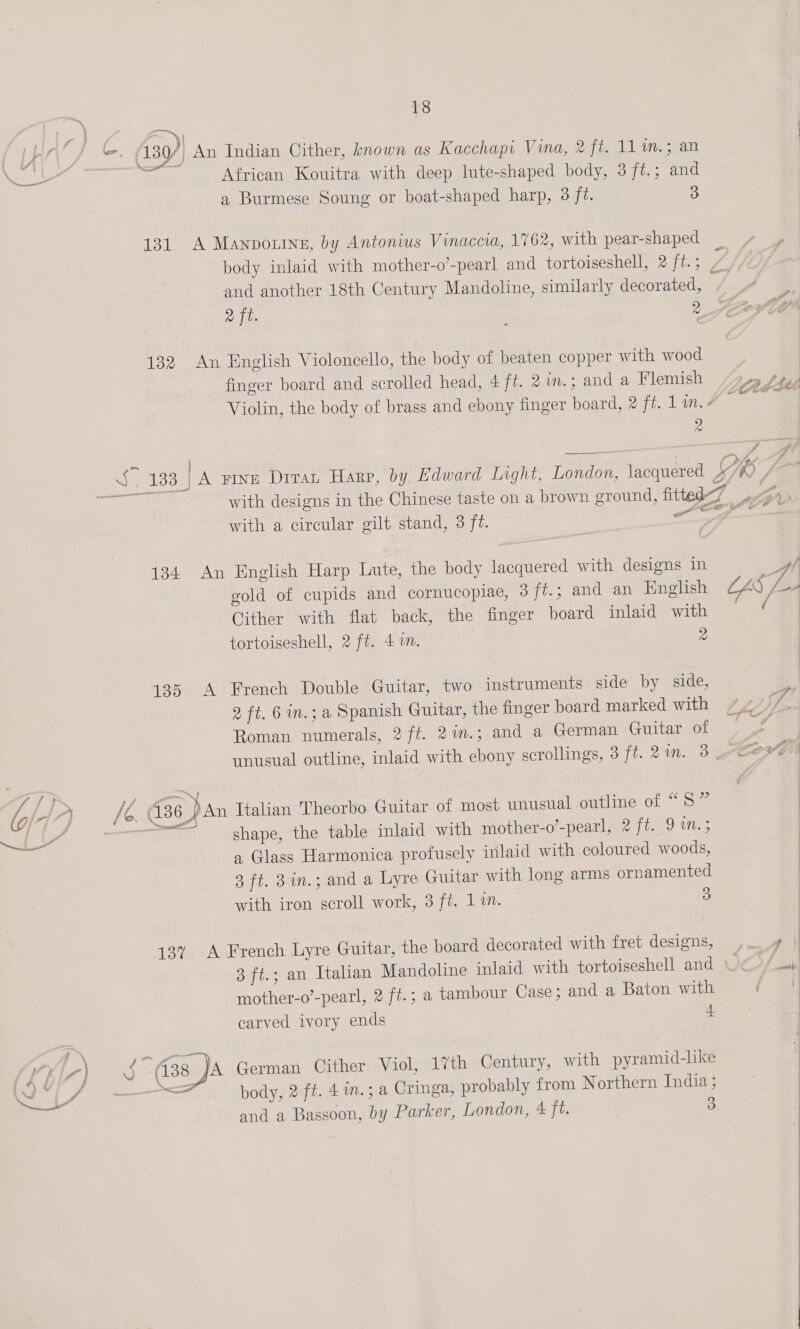 18
130 An Indian Cither, known as Kacchapi Vina, 2 ft. 11 in.; an
African Kouitra with deep lute-shaped body, 3 ft.; and
a Burmese Soung or boat-shaped harp, 3 ft. 3
131 A MANDOLINE, by Antonius Vinaccia, 1762, with pear-shaped
body inlaid with mother-o'-pearl and tortoiseshell, 2 ft.;
and another 18th Century Mandoline, similarly decorated,
2 ft. 2
132 An English Violoncello, the body of beaten copper with wood
finger board and scrolled head, 4 ft. 2 in.; and a Flemish
Violin, the body of brass and ebony finger board, 2 ft. 1 in.
2
S 133 A FINE DITAL HARP, by Edward Light, London, lacquered
with designs in the Chinese taste on a brown ground, fitted
with a circular gilt stand, 3 ft.
134 An English Harp Lute, the body lacquered with designs in
gold of cupids and cornucopiae, 3 ft.; and an English
Cither with flat back, the finger board inlaid with
tortoiseshell, 2 ft. 4 in. 2
135 A French Double Guitar, two instruments side by side,
2 ft. 6 in.; a Spanish Guitar, the finger board marked with
Roman numerals, 2 ft. 2 in.; and a German Guitar of
unusual outline, inlaid with ebony scrollings, 3 ft. 2 in. 3
136 An Italian Theorbo Guitar of most unusual outline of “S”
shape, the table inlaid with mother-o'-pearl, 2 ft. 9 in.;
a Glass Harmonica profusely inlaid with coloured woods,
3 ft. 3 in.; and a Lyre Guitar with long arms ornamented
with iron scroll work, 3 ft. 1 in. 3
137 A French Lyre Guitar, the board decorated with fret designs,
3 ft.; an Italian Mandoline inlaid with tortoiseshell and
mother-o'-pearl, 2 ft.; a tambour Case; and a Baton with
carved ivory ends 4
138 A German Cither Viol, 17th Century, with pyramid-like
body, 2 ft. 4 in.; a Cringa, probably from Northern India;
and a Bassoon, by Parker, London, 4 ft. 3